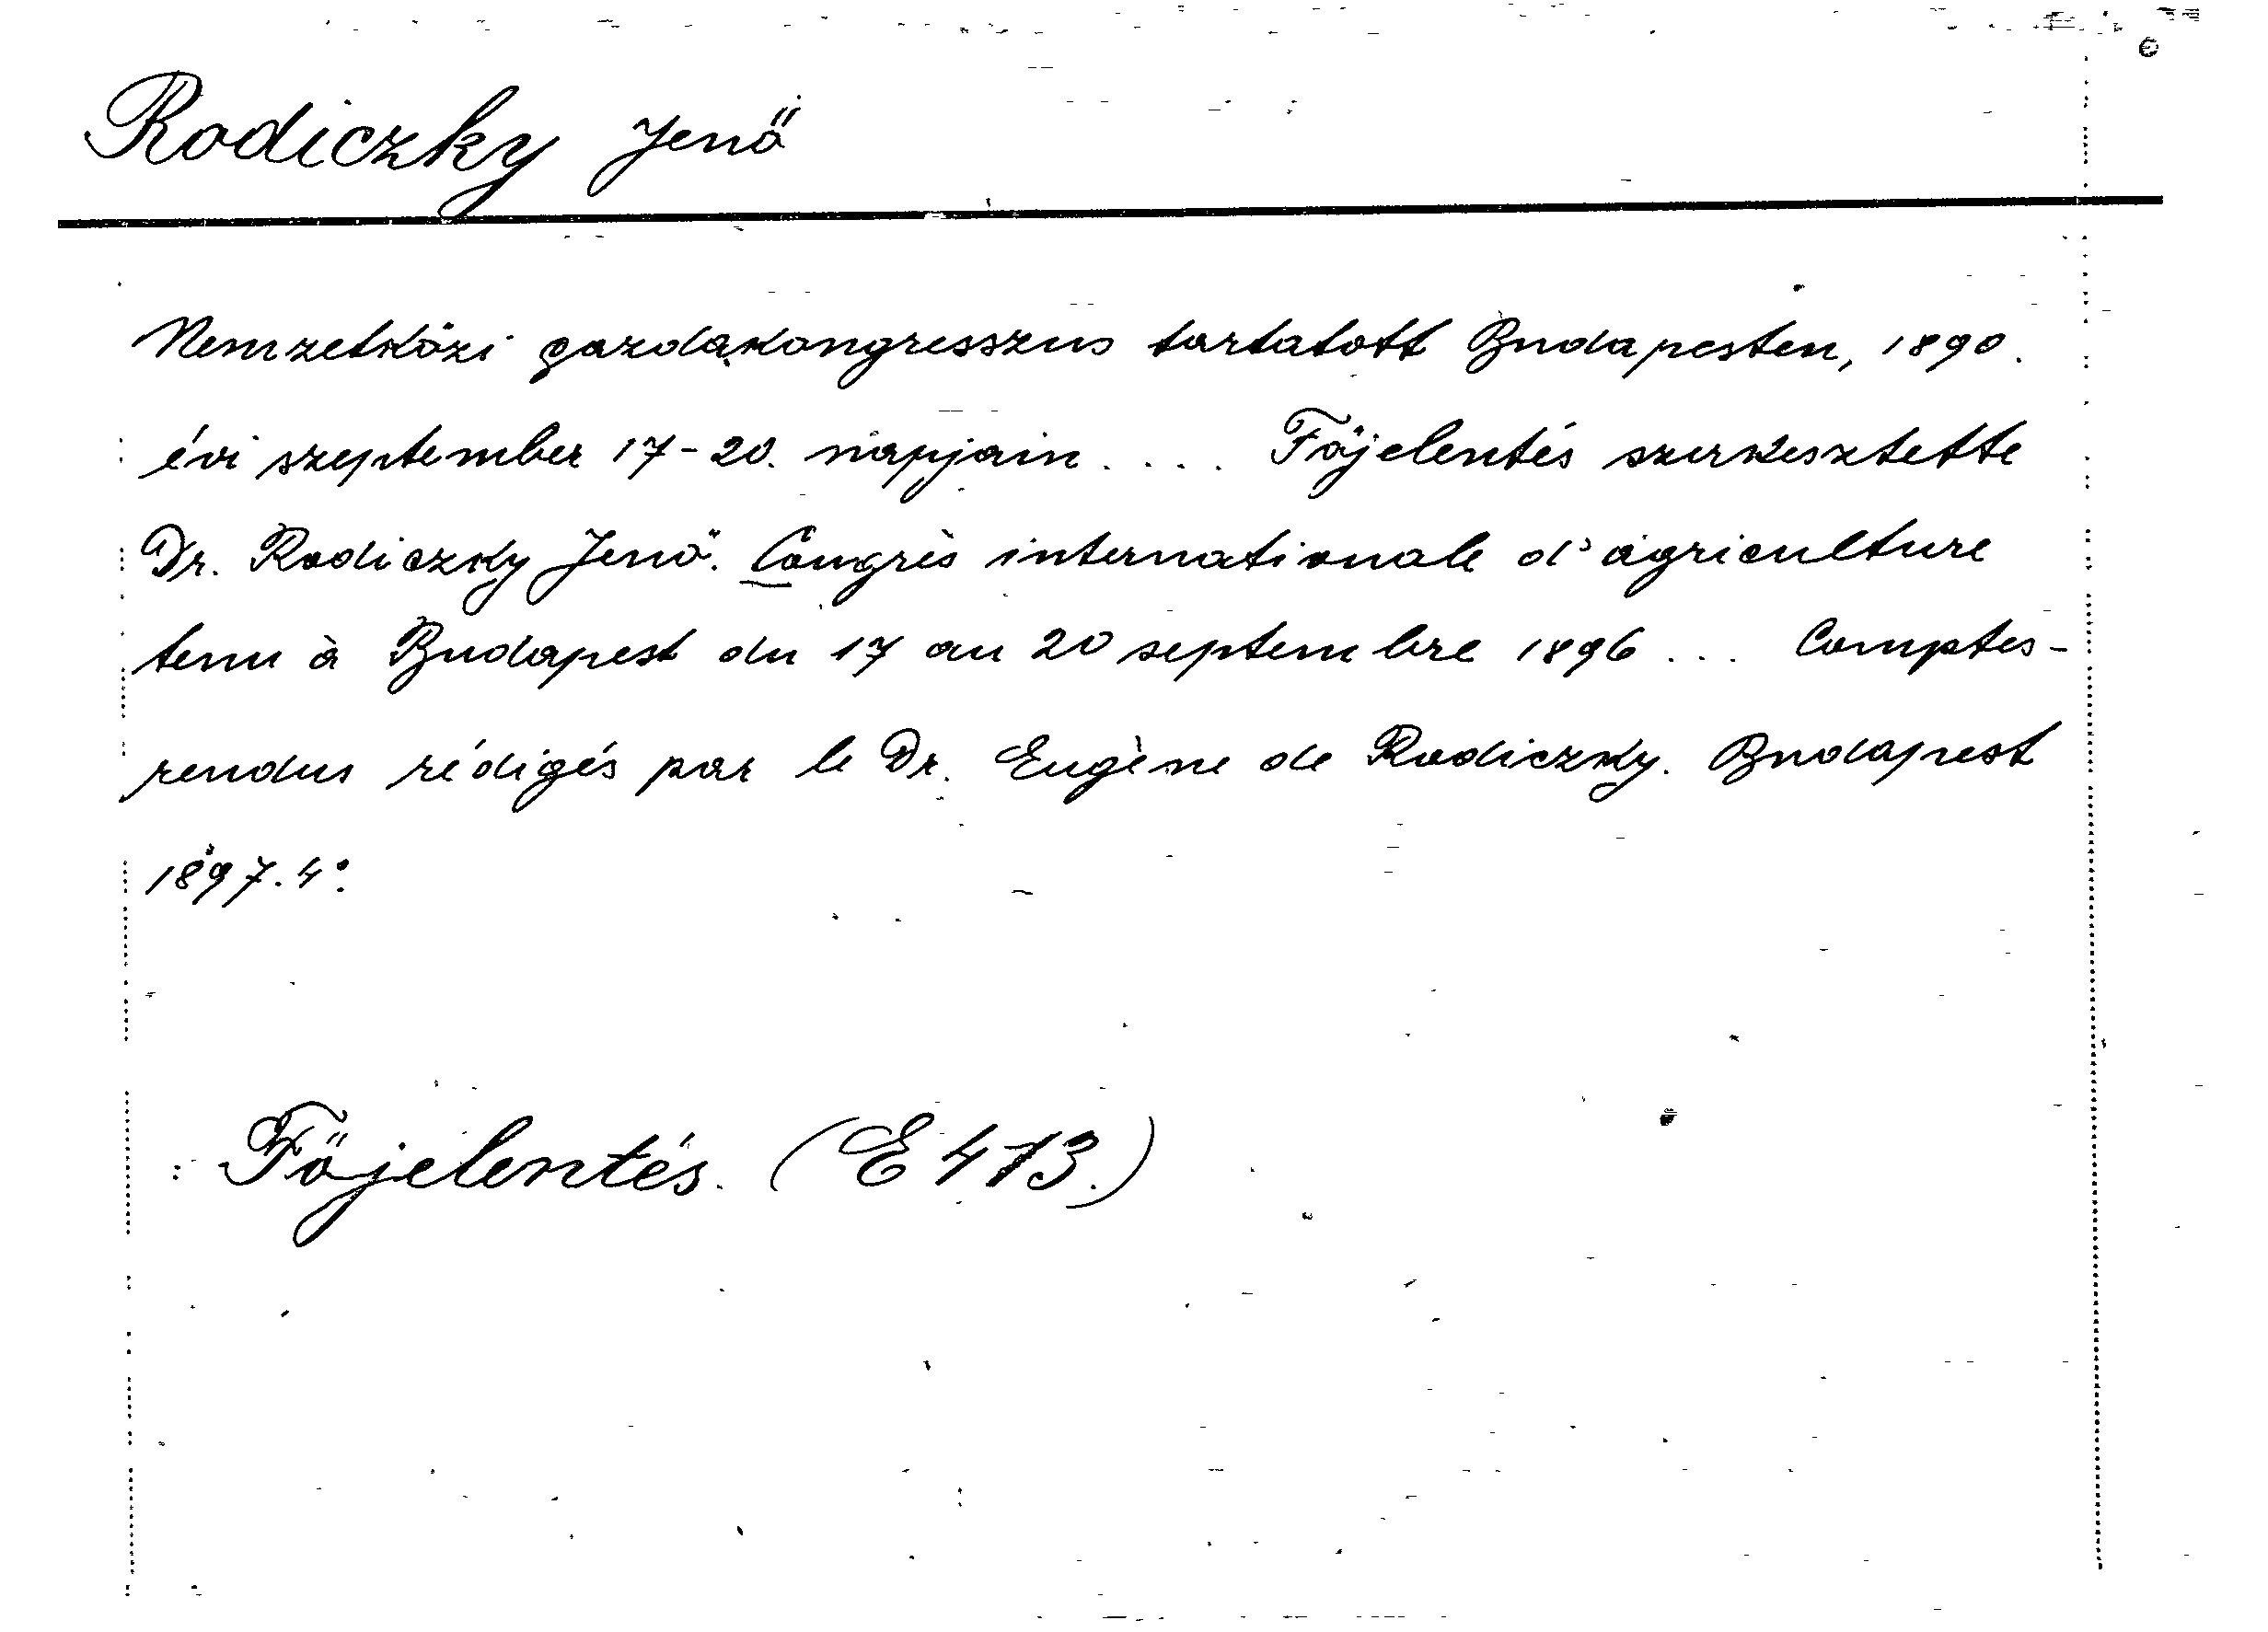 Rodiczky Jenő
Nemzetközi gazdakongresszus tartatott Budapesten, 1890.
évi szeptember 17-20. napjain .... Főjelentés szerkesztette
Dr. Rodiczky Jenő. Congrès internationale d'agriculture
tenu à Budapest du 17 au 20 septembre 1896 ... Comptes-
rendus rédigés par le Dr. Eugène de Rodiczky. Budapest
1897. 4°.
: Főjelentés. (E 413.)